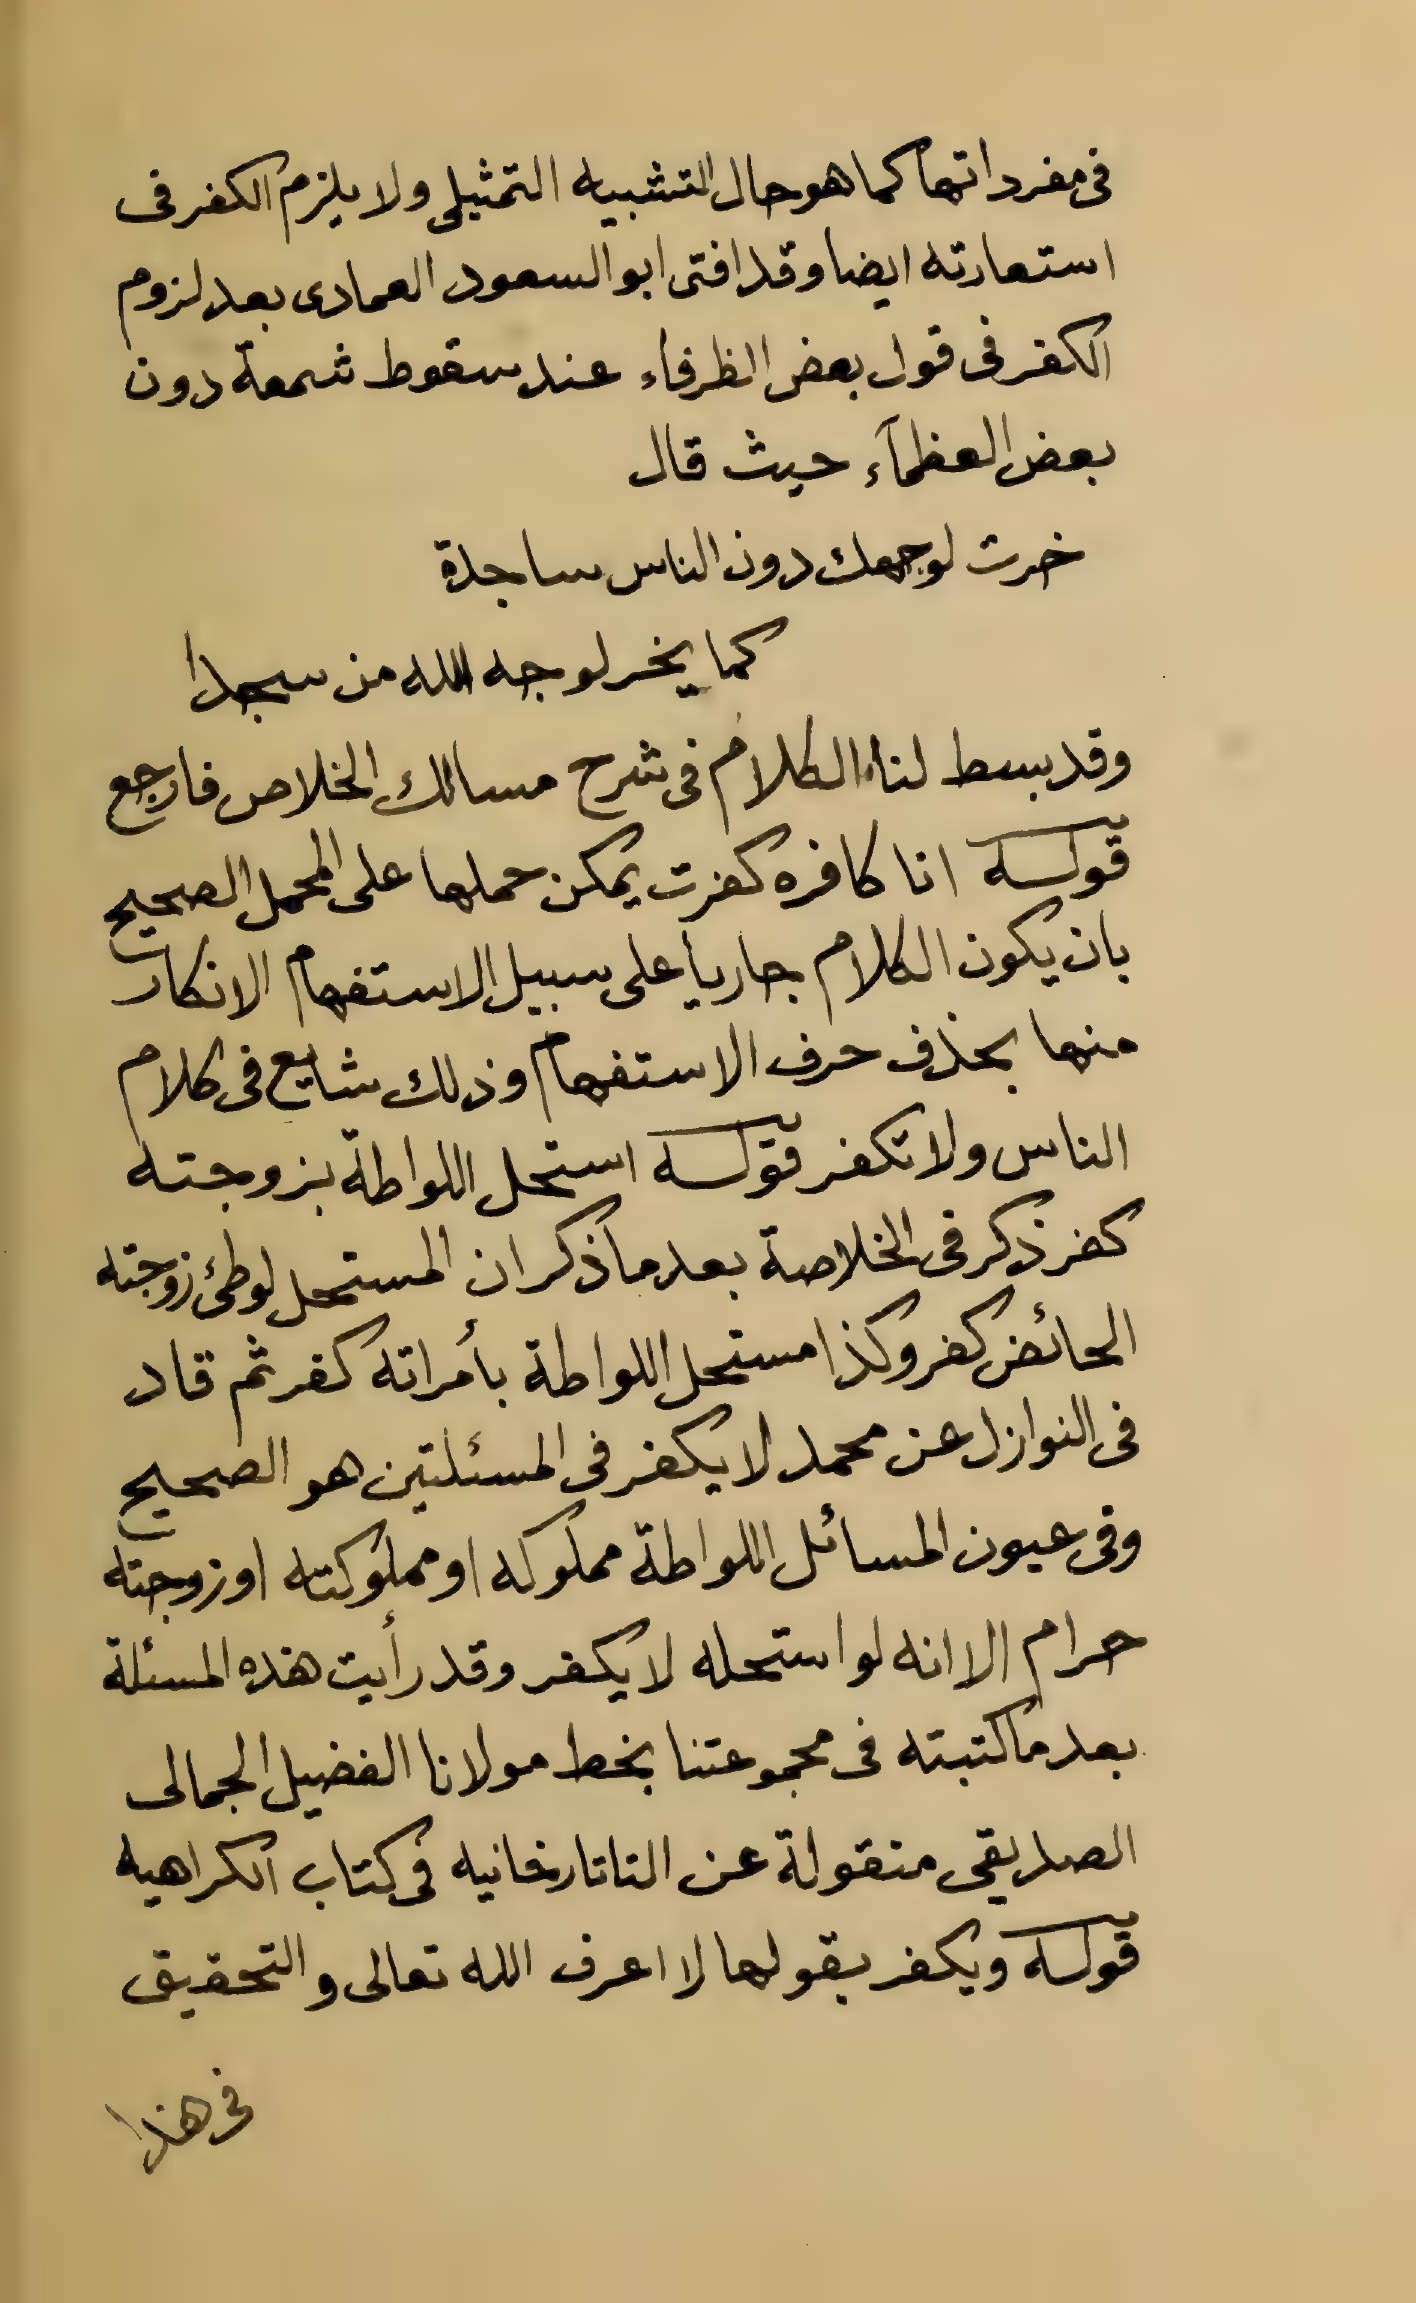 فى مفرداتها كما هو حال التشبيه التمثيلى ولا يلزم الكفر فى
استعارته ايضا وقد افتى ابو السعود العمادى بعد لزوم
الكفر فى قول بعض الظرفاء عند سقوط شمعة دون
بعض العظمآء حيث قال
خرت لوجهك دون الناس ساجدة
كما يخر لوجه الله من سجدا
وقد بسط لنا الكلام فى شرح مسالك الخلاص فارجع
قوله انا كافره كفرت يمكن حملها على المحمل الصحيح
بان يكون الكلام جاريا على سبيل الاستفهام الانكار
منها بحذف حرف الاستفهام وذلك شايع فى كلام
الناس ولا تكفر قوله استحل اللواطة بزوجته
كفر ذكر فى الخلاصة بعد ما ذكر ان المستحل لوطئ زوجته
الحائض كفر وكذا مستحل اللواطة بأمراته كفر ثم قال
فى النوازل عن محمد لا يكفر فى المسئلتين هو الصحيح
وفى عيون المسائل اللواطة مملوكه او مملوكته او زوجته
حرام الا انه لو استحله لا يكفر وقد رأيت هذه المسئلة
بعد ما كتبته فى مجموعتنا بخط مولانا الفضيل الجمالى
الصديقى منقولة عن التاتارخانيه فى كتاب الكراهيه
قوله ويكفر بقولها لا اعرف الله تعالى والتحقيق
فى هذا